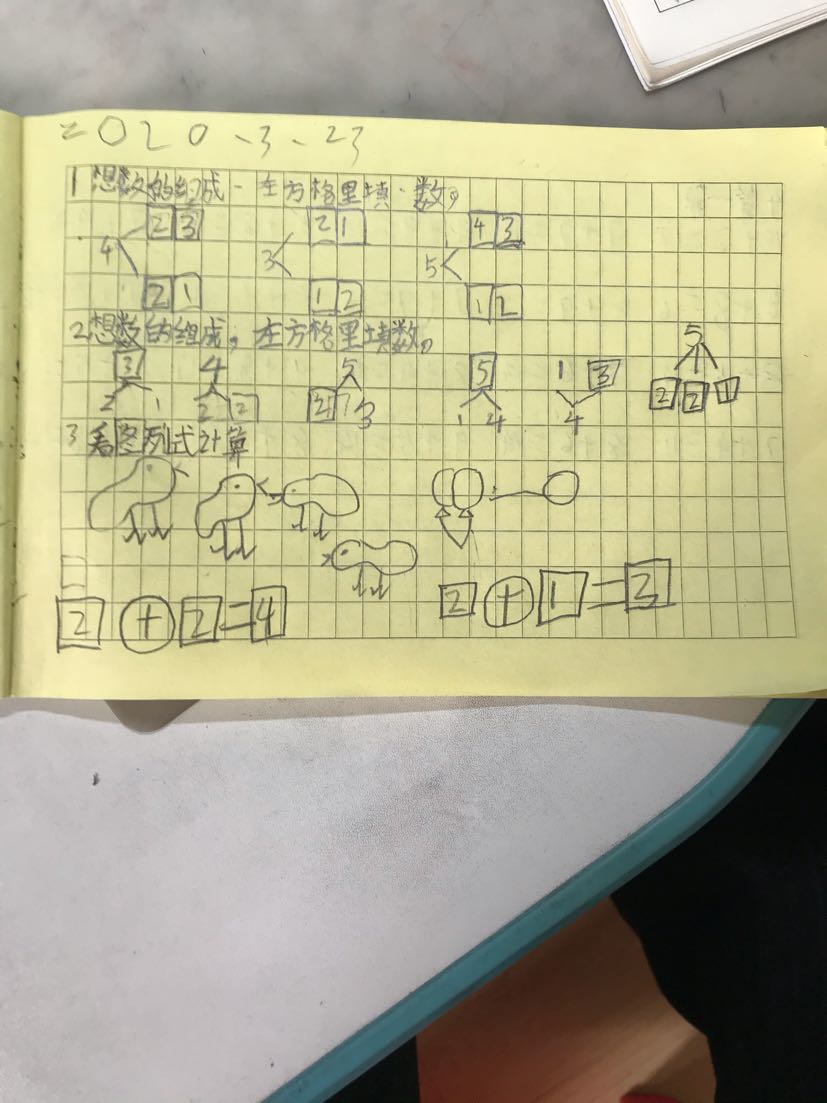 2020、3、23
1想数的组成、在方格里填、数。
23 21 43
4 3 5
21 12 12
2想数的组成,在方格里填数。
3 4 5 5 1 3 5
2 1 2 2 2 3 1 4 4 2 2 1
3看图列式计算
2+2=4 2+1=3